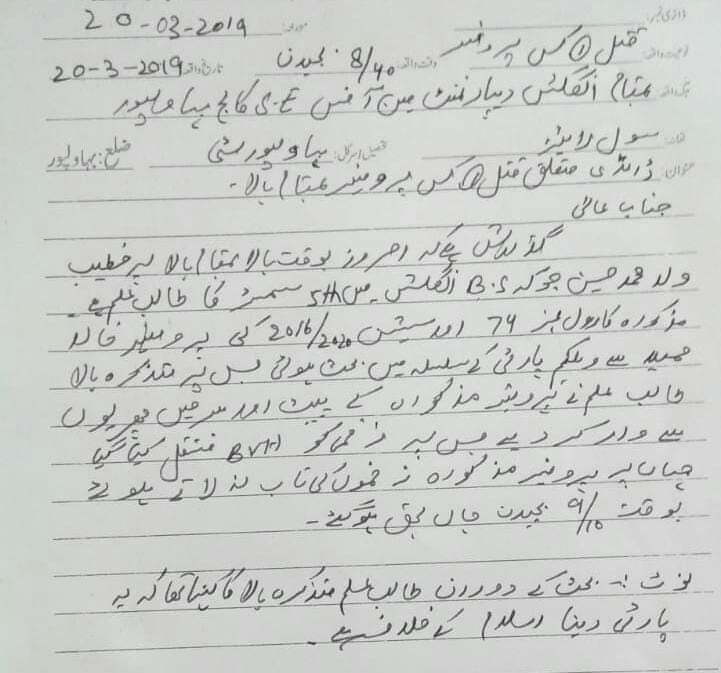 ڈائری نمبر: مورخہ: 20-03-2019
نوعیت وقوعہ: قتل ① کس پروفیسر وقت وقوعہ: 8/40 بجیدن تاریخ وقوعہ: 20-3-2019
جائے وقوعہ: بمقام انگلش ڈیپارٹمنٹ مین آفس S.E کالج بہاولپور
تھانہ: سول لائینز تحصیل/سرکل: بہاولپور سٹی ضلع: بہاولپور
عنوان: ڈائری متعلق قتل ① کس پروفیسر بمقام بالا۔
جناب عالی
گذارش ہے کہ امروز بوقت بالا بمقام بالا پر خطیب
ولد محمد حسین جو کہ B.S انگلش میں 5th سمسٹر کا طالب علم ہے۔
مذکورہ کا رول نمبر 74 اور سیشن 2016/2020 کی پروفیسر خالد
حمید سے ویلکم پارٹی کے سلسلہ میں بحث ہوئی جس پر متذکرہ بالا
طالب علم نے پروفیسر مذکورہ کے پیٹ اور سر میں چھریوں
سے وار کر دیے جس پر زخمی کو BVH منتقل کیا گیا
جہاں پر پروفیسر مذکورہ زخموں کی تاب نہ لاتے ہوئے
بوقت 9/10 بجیدن جاں بحق ہوگئے۔
نوٹ :- بحث کے دوران طالب علم متذکرہ بالا کا کہنا تھا کہ یہ
پارٹی دینا اسلام کے خلاف ہے۔